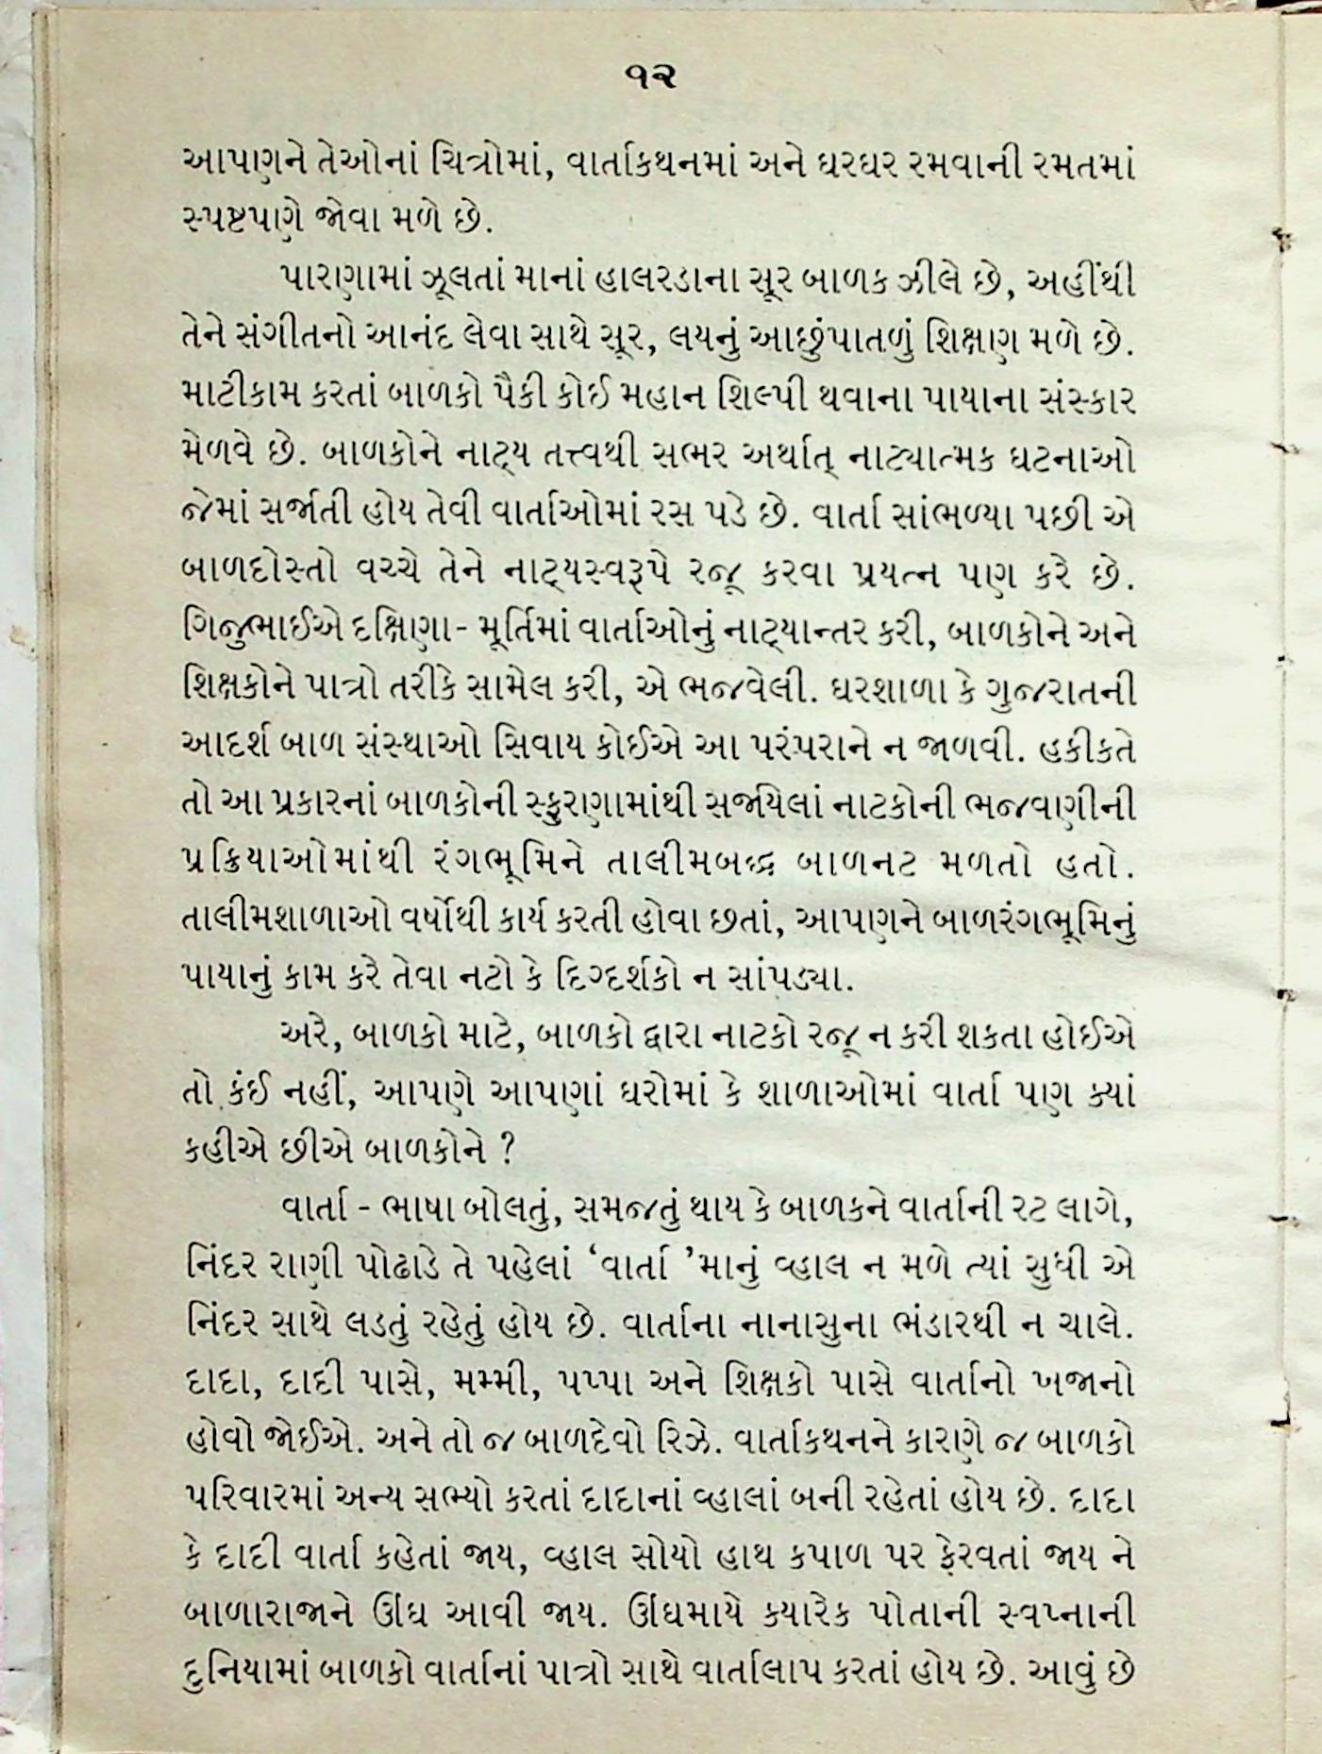 ૧૨
આપણને તેઓનાં ચિત્રોમાં, વાર્તાકથનમાં અને ઘરઘર રમવાની રમતમાં
સ્પષ્ટપણે જોવા મળે છે.
પારણામાં ઝૂલતાં માનાં હાલરડાના સૂર બાળક ઝીલે છે, અહીંથી
તેને સંગીતનો આનંદ લેવા સાથે સૂર, લયનું આછુંપાતળું શિક્ષણ મળે છે.
માટીકામ કરતાં બાળકો પૈકી કોઈ મહાન શિલ્પી થવાના પાયાના સંસ્કાર
મેળવે છે. બાળકોને નાટ્ય તત્ત્વથી સભર અર્થાત્ નાટ્યાત્મક ઘટનાઓ
જેમાં સર્જાતી હોય તેવી વાર્તાઓમાં રસ પડે છે. વાર્તા સાંભળ્યા પછી એ
બાળદોસ્તો વચ્ચે તેને નાટ્યસ્વરૂપે રજૂ કરવા પ્રયત્ન પણ કરે છે.
ગિજુભાઈએ દક્ષિણા- મૂર્તિમાં વાર્તાઓનું નાટ્યાન્તર કરી, બાળકોને અને
શિક્ષકોને પાત્રો તરીકે સામેલ કરી, એ ભજવેલી. ઘરશાળા કે ગુજરાતની
આદર્શ બાળ સંસ્થાઓ સિવાય કોઈએ આ પરંપરાને ન જાળવી. હકીકતે
તો આ પ્રકારનાં બાળકોની સ્ફુરણામાંથી સર્જાયેલાં નાટકોની ભજવણીની
પ્રક્રિયાઓમાંથી રંગભૂમિને તાલીમબદ્ધ બાળનટ મળતો હતો.
તાલીમશાળાઓ વર્ષોથી કાર્ય કરતી હોવા છતાં, આપણને બાળરંગભૂમિનું
પાયાનું કામ કરે તેવા નટો કે દિગ્દર્શકો ન સાંપડ્યા.
અરે, બાળકો માટે, બાળકો દ્વારા નાટકો રજૂ ન કરી શકતા હોઈએ
તો કંઈ નહીં, આપણે આપણાં ઘરોમાં કે શાળાઓમાં વાર્તા પણ ક્યાં
કહીએ છીએ બાળકોને ?
વાર્તા - ભાષા બોલતું, સમજતું થાય કે બાળકને વાર્તાની રટ લાગે,
નિંદર રાણી પોઢાડે તે પહેલાં ‘વાર્તા ’માનું વ્હાલ ન મળે ત્યાં સુધી એ
નિંદર સાથે લડતું રહેતું હોય છે. વાર્તાના નાનાસુના ભંડારથી ન ચાલે.
દાદા, દાદી પાસે, મમ્મી, પપ્પા અને શિક્ષકો પાસે વાર્તાનો ખજાનો
હોવો જોઈએ. અને તો જ બાળદેવો રિઝે. વાર્તાકથનને કારણે જ બાળકો
પરિવારમાં અન્ય સભ્યો કરતાં દાદાનાં વ્હાલાં બની રહેતાં હોય છે. દાદા
કે દાદી વાર્તા કહેતાં જાય, વ્હાલ સોયો હાથ કપાળ પર ફેરવતાં જાય ને
બાળારાજાને ઊંઘ આવી જાય. ઊંઘમાયે કયારેક પોતાની સ્વપ્નાની
દુનિયામાં બાળકો વાર્તાનાં પાત્રો સાથે વાર્તાલાપ કરતાં હોય છે. આવું છે